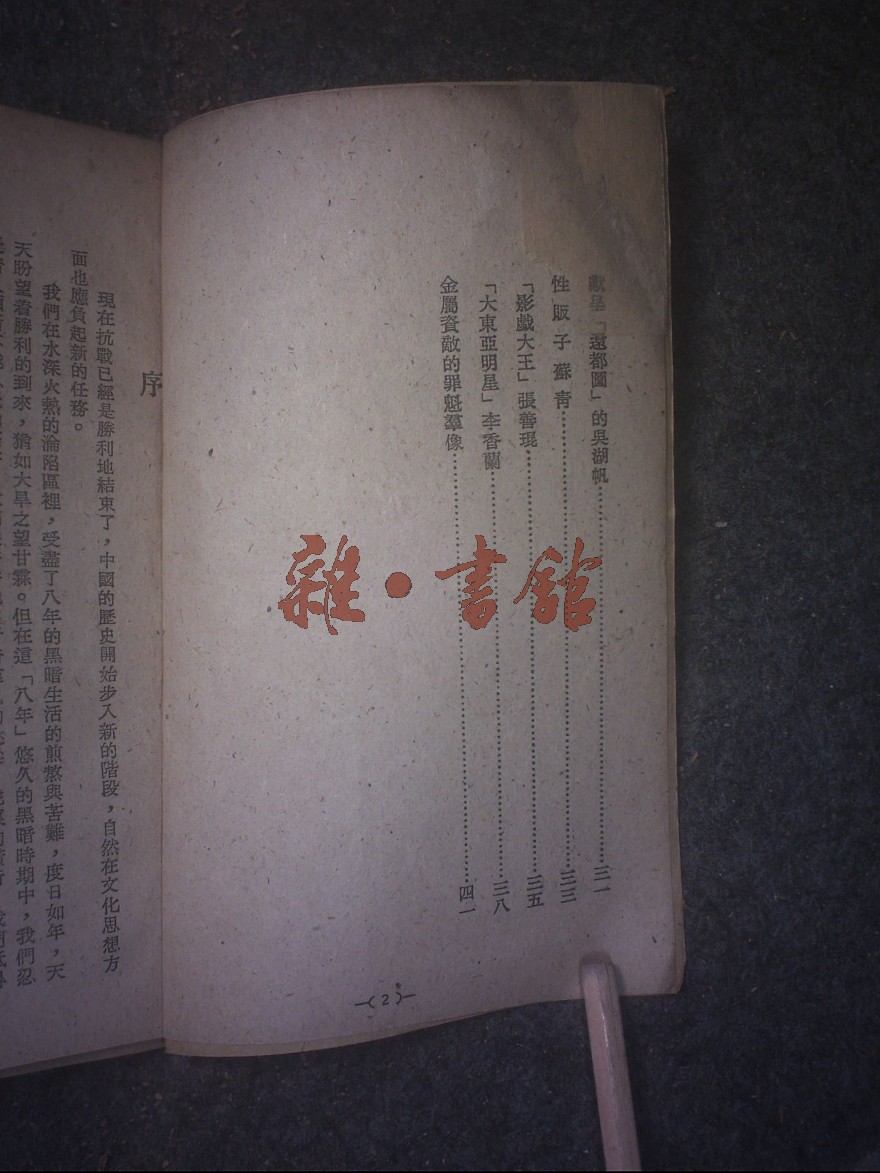 獻呈「還都圖」的吳湖帆……三一
性販子蘇靑……三三
「影戲大王」張善琨……三五
「大東亞明星」李香蘭……三八
金屬資敵的罪魁羣像……四一
—(2)—
序
現在抗戰已經是勝利地結束了，中國的歷史開始步入新的階段，自然在文化思想方
面也應負起新的任務。
我們在水深火熱的淪陷區裡，受盡了八年的黑暗生活的煎熬與苦難，度日如年，天
天盼望着勝利的到來，猶如大旱之望甘霖。但在這「八年」悠久的黑暗時期中，我們忍
雜·書館